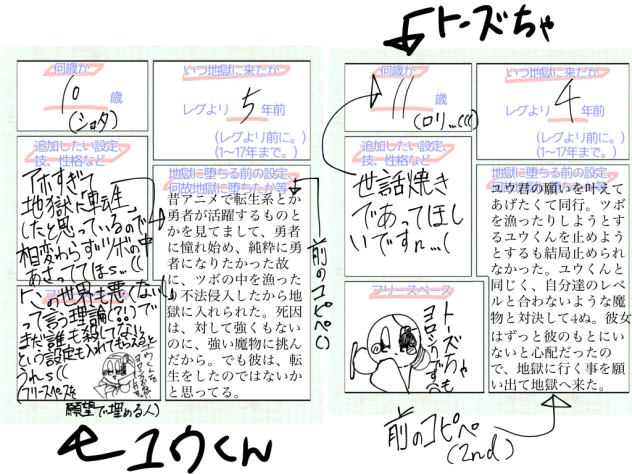 トーズちゃ
何歳か
10
歳
(ショタ)
いつ地獄に来たか
レグより 5 年前
(レグより前に。)
(1〜17年まで。)
追加したい設定、
技、性格など
アホすぎて
地獄に転生
したと思っているので
相変わらずツボの中
あさっててほs...((
地獄に堕ちる前の設定、
何故地獄に堕ちたか等
昔アニメで転生系とか
勇者が活躍するものと
かを見てまして、勇者
に憧れ始め、純粋に勇
者になりたかった故
に、ツボの中を漁った
り不法侵入したから地
獄に入れられた。死因
は、対して強くもない
のに、強い魔物に挑ん
だから。でも彼は、転
生をしたのではないか
と思ってる。
前のコピペ(
フリースペース
この世界も悪くない!
って言う理論(?!)で
まだ誰も殺してない
という設定も入れてもらえると
うれs((
フリースペースを
願望で埋める人)
←ユウくん
何歳か
11
歳
(ロリ...(((()
いつ地獄に来たか
レグより 4 年前
(レグより前に。)
(1〜17年まで。)
追加したい設定、
技、性格など
世話焼き
であってほし
いですn...(
ユウ君の願いを叶えて
あげたくて同行。ツボ
を漁ったりしようとす
るユウくんを止めよう
とするも結局止められ
なかった。ユウくんと
同じく、自分達のレベ
ルと合わないような魔
物と対決して4ぬ。彼女
はずっと彼のもとにい
ないと心配だったの
で、地獄に行く事を願
い出て地獄へ来た。
フリースペース
トーズちゃ
ヨロシクです
前のコピペ
(2nd)